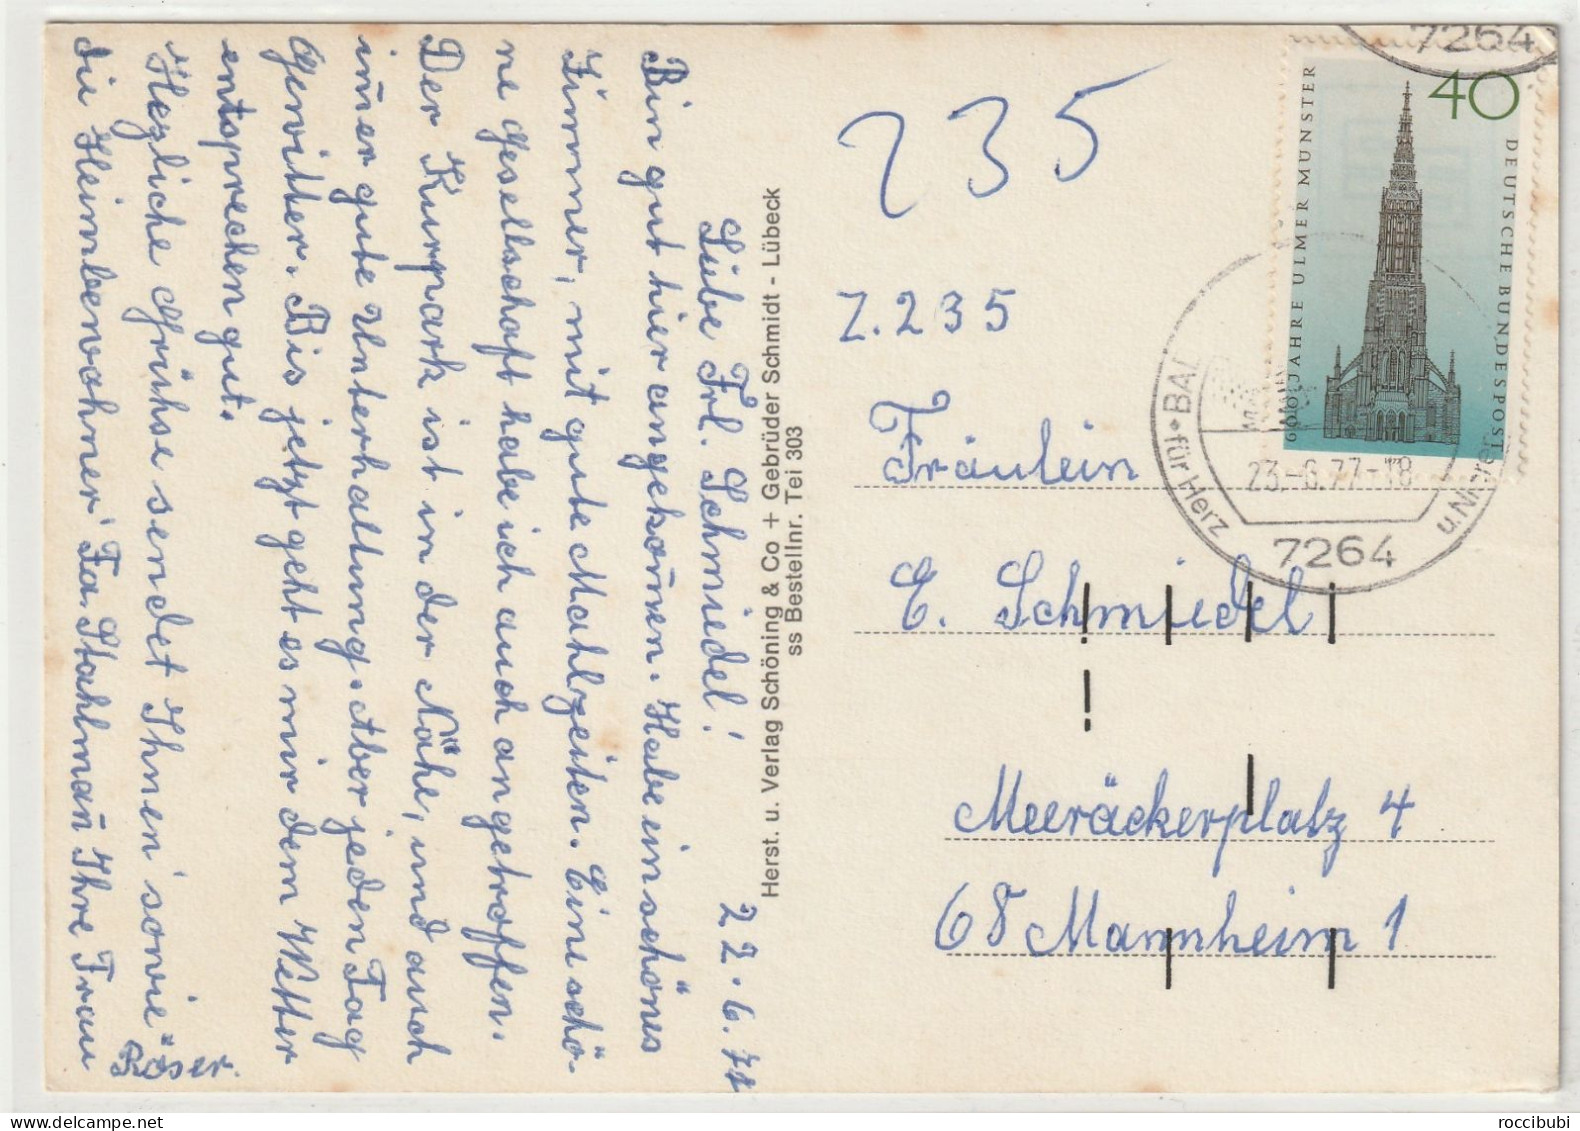 22.6.77
Liebe Frl. Schmiedel!
Bin gut hier angekom̄en. Habe ein schönes
Zimmer, mit gute Mahlzeiten. Eine schö-
ne Gesellschaft habe ich auch angetroffen.
Der Kurpark ist in der Nähe, und auch
im̄er gute Unterhaltung. Aber jeden Tag
Gewitter. Bis jetzt geht es mir dem Wetter
entsprechen gut.
Herzliche Grühse sendet Ihnen sowie
die Heimbewohner Fa. Stahlman̄ Ihre Frau
Röser.
Herst. u. Verlag Schöning & Co + Gebrüder Schmidt - Lübeck
ss Bestellnr. Tei 303
235
Z. 235
Fräulein
E. Schmiedel
Meeräckerplatz 4
68 Mannheim 1
7264
40
600 JAHRE ULMER MÜNSTER
DEUTSCHE BUNDESPOST
BAD
für Herz
u. Nerven
23.-6.77-18
7264
roccibubi